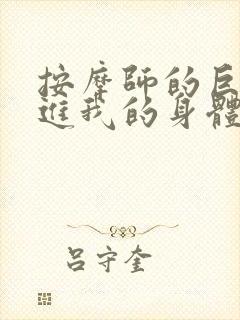 按摩師的巨
進我的身體
吕守奎